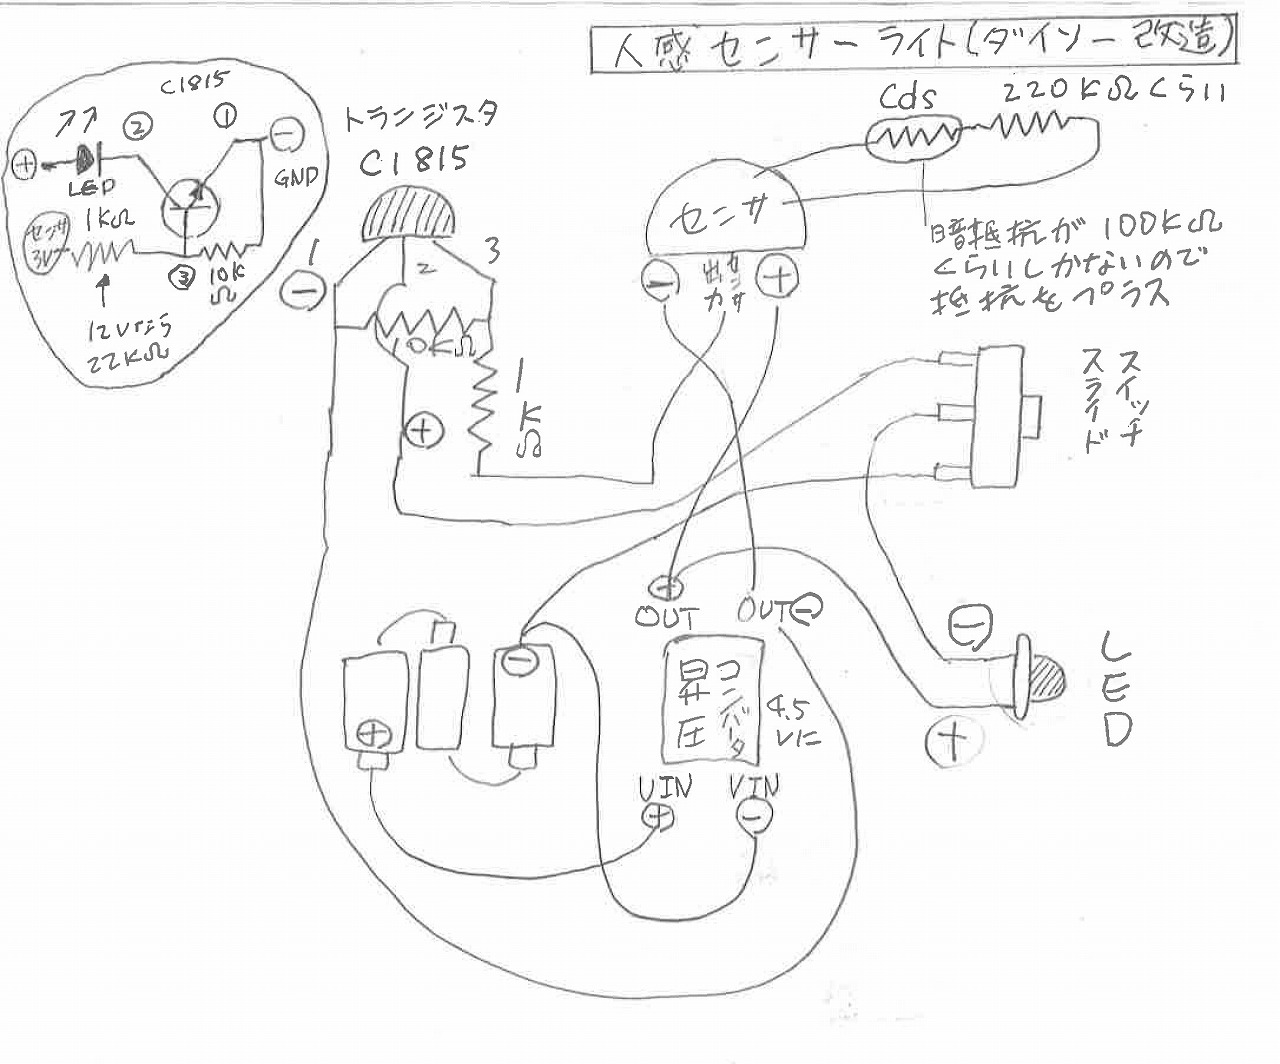 人感センサーライト(ダイソー改造)
C1815
②
①
⊖
GND
⊕
LED
センサ
3V
1KΩ
③
10K
Ω
12Vなら
22KΩ
トランジスタ
C1815
1
⊖
2
3
10KΩ
⊕
1KΩ
Cds
220KΩくらい
センサ
⊖
センサ
出力
⊕
暗抵抗が100KΩ
くらいしかないので
抵抗をプラス
スライド
スイッチ
⊕
OUT
OUT⊖
昇圧
コンバータ
4.5
Vに
VIN
⊕
VIN
⊖
⊖
⊕
⊖
⊕
LED